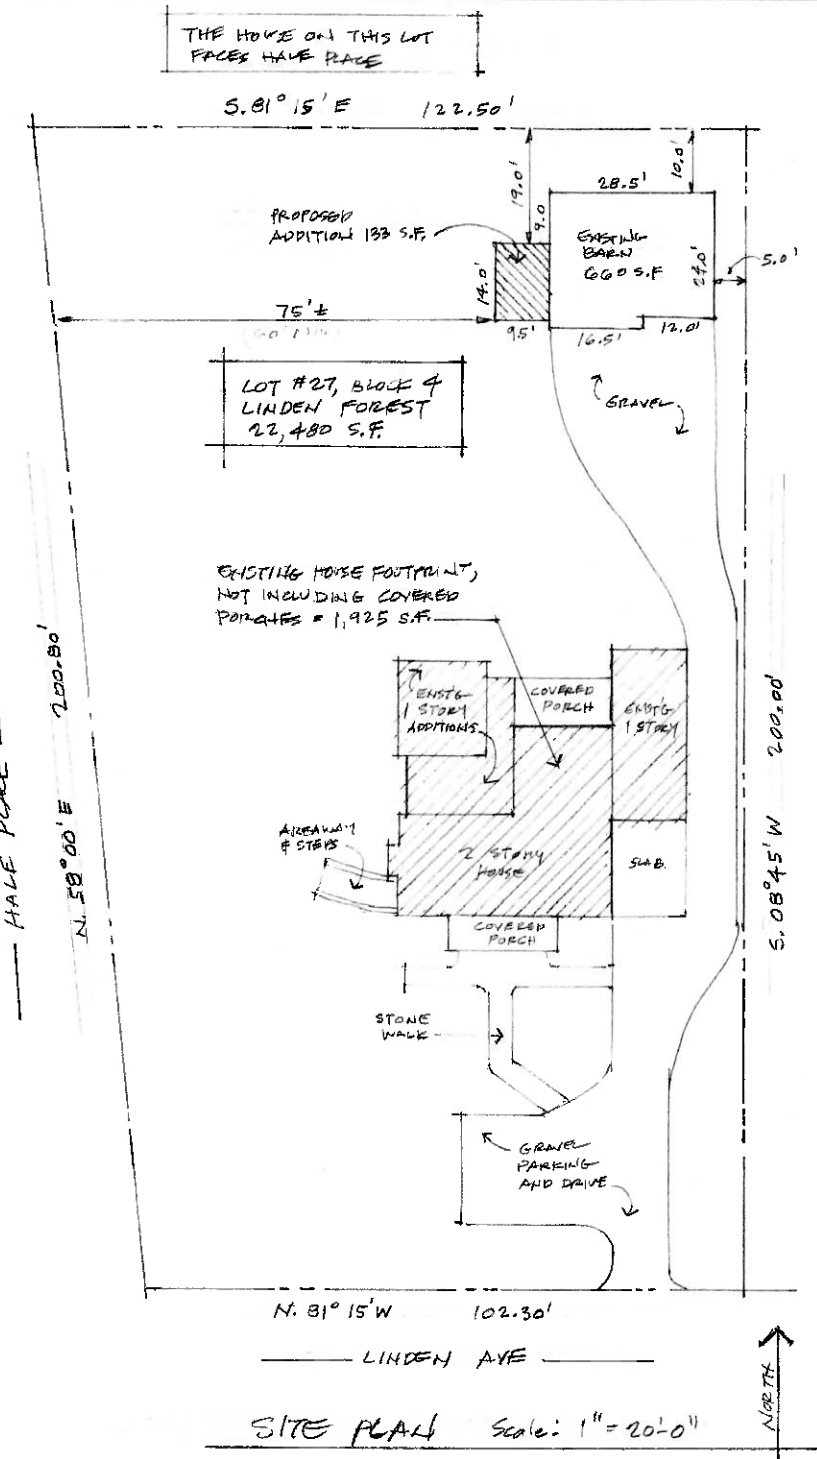 THE HOUSE ON THIS LOT
FACES HALE PLACE
S. 81° 15' E 122.50'
19.0'
10.0'
28.5'
9.0
PROPOSED
ADDITION 133 S.F.
EXISTING
BARN
660 S.F
24.0'
5.0'
14.0'
75' ±
9.5'
16.5'
12.0'
LOT #27, BLOCK 4
LINDEN FOREST
22,480 S.F.
GRAVEL
EXISTING HOUSE FOOTPRINT,
NOT INCLUDING COVERED
PORCHES = 1,925 S.F.
HALE PLACE
N. 58° 00' E 200.80'
S. 08° 45' W 200.00'
EXIST'G
1 STORY
ADDITIONS
COVERED
PORCH
EXIST'G
1 STORY
AREAWAY
& STEPS
2 STORY
HOUSE
SLAB
COVERED
PORCH
STONE
WALK
GRAVEL
PARKING
AND DRIVE
N. 81° 15' W 102.30'
LINDEN AVE
NORTH
SITE PLAN Scale: 1" = 20'-0"